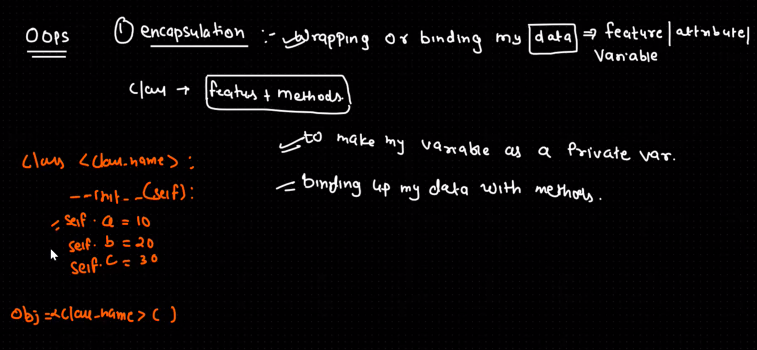 OOPS
① encapsulation :- Wrapping or binding my data ⇒ feature|attribute|
variable
Class → featus + methods.
to make my variable as a Private var.
= binding up my data with methods.
Class <Class_name> :
__init__(self):
self. a = 10
self. b = 20
self. c = 30
Obj = <Class_name> ( )